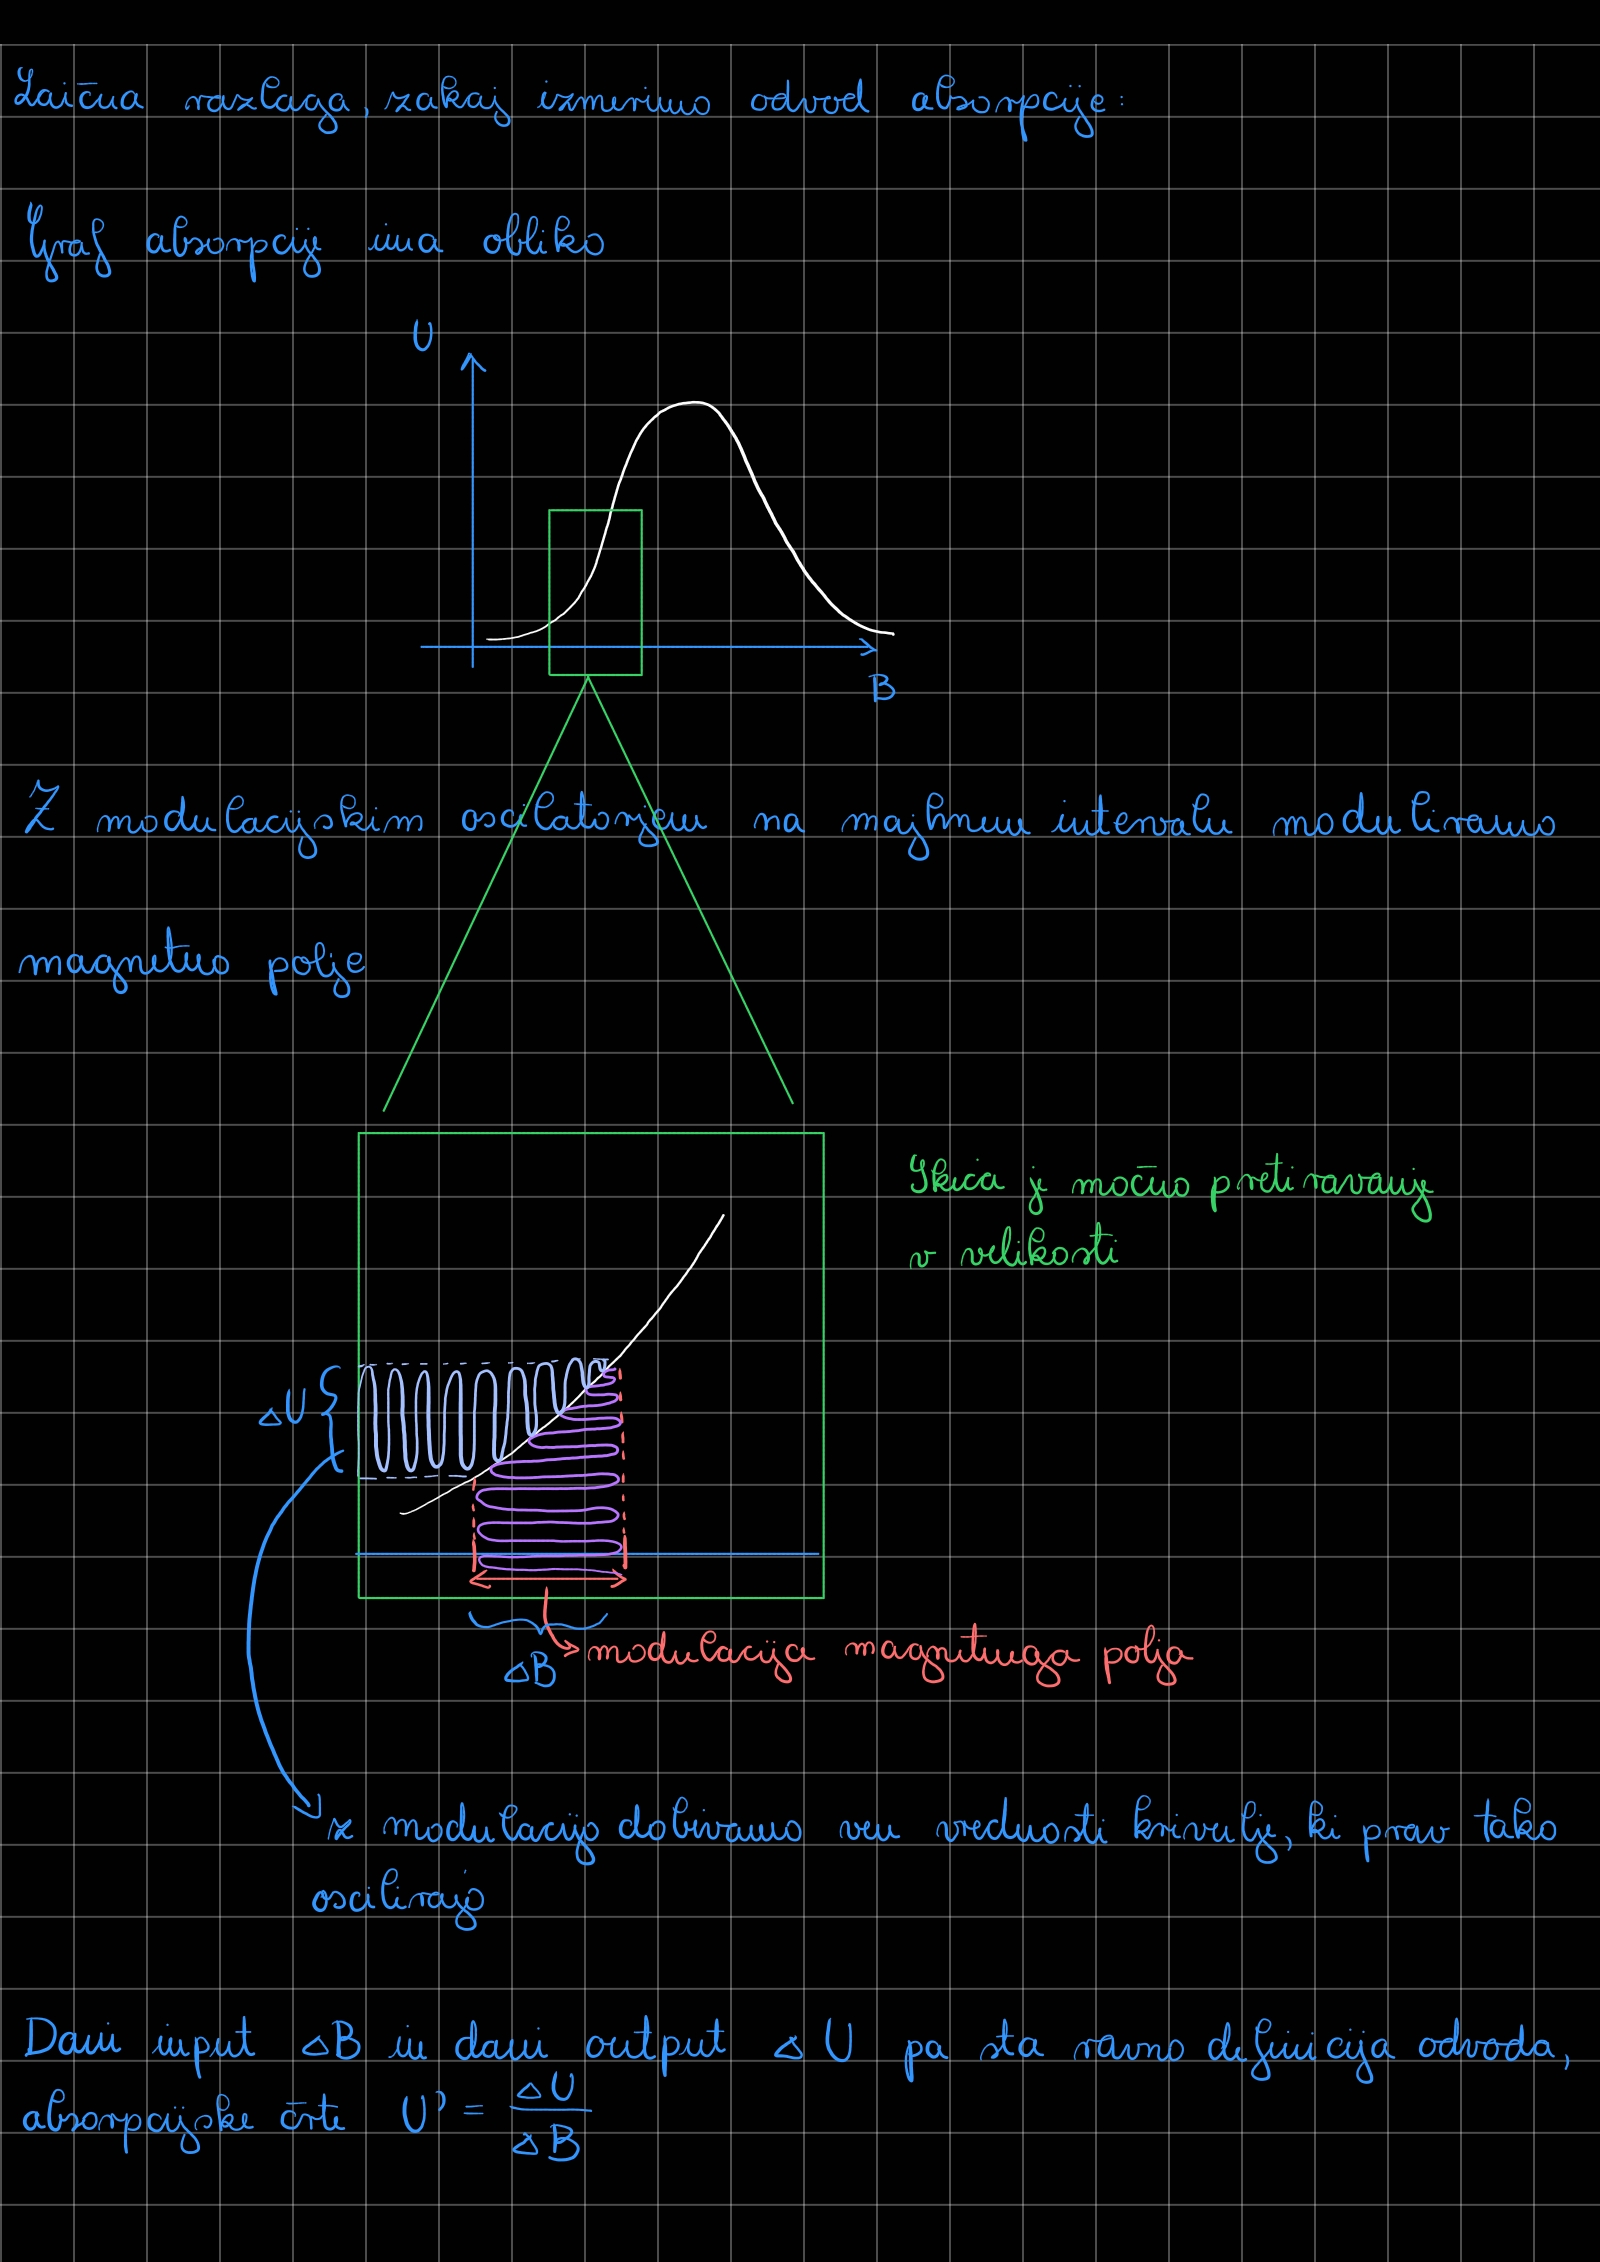 Laična razlaga, zakaj izmerimo odvod absorpcije:
Graf absorpcije ima obliko
U
B
Z modulacijskim oscilatorjem na majhnem intervalu moduliramo
magnetno polje
Skica je močno pretiravanje
v velikosti
ΔU
ΔB
modulacija magnetnega polja
z modulacijo dobivamo ven vrednosti krivulje, ki prav tako
oscilirajo
Dani input ΔB in dani output ΔU pa sta ravno definicija odvoda,
absorpcijske črte U' = ΔU/ΔB